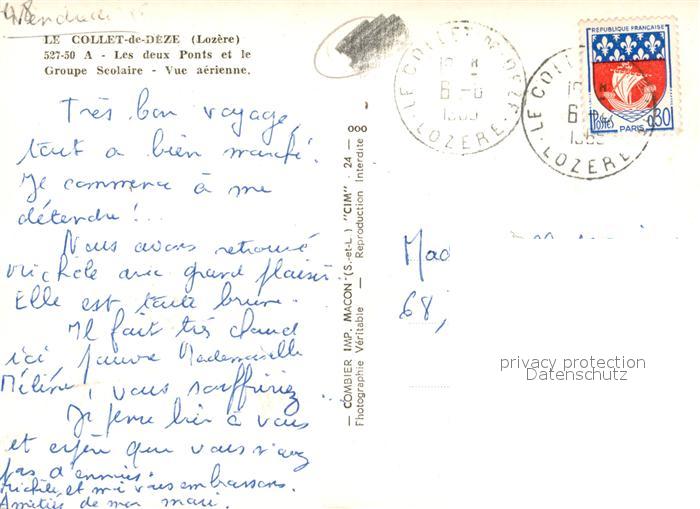 Vendredi
LE COLLET-de-DÈZE (Lozère)
527-50 A - Les deux Ponts et le
Groupe Scolaire - Vue aérienne.
Très bon voyage,
tout a bien marché.
Je commence à me
détendre !...
Nous avons retrouvé
Michèle avec grand plaisir.
Elle est toute brune.
Il fait très chaud
ici, pauvre Mademoiselle
, vous souffririez...
Je pense bien à vous
et espère que vous n'avez
pas d'ennuis.
Michèle et moi vous embrassons.
Amitiés de mon mari.
— COMBIER IMP. MACON (S.-et-L.) "CIM" - 24 — 000
Photographie Véritable — Reproduction Interdite
LE COLLET DE DEZE
6-8
LOZERE
LE COLLET
6
LOZERE
REPUBLIQUE FRANÇAISE
POSTES
0,30
PARIS
Mad
68,
privacy protection
Datenschutz